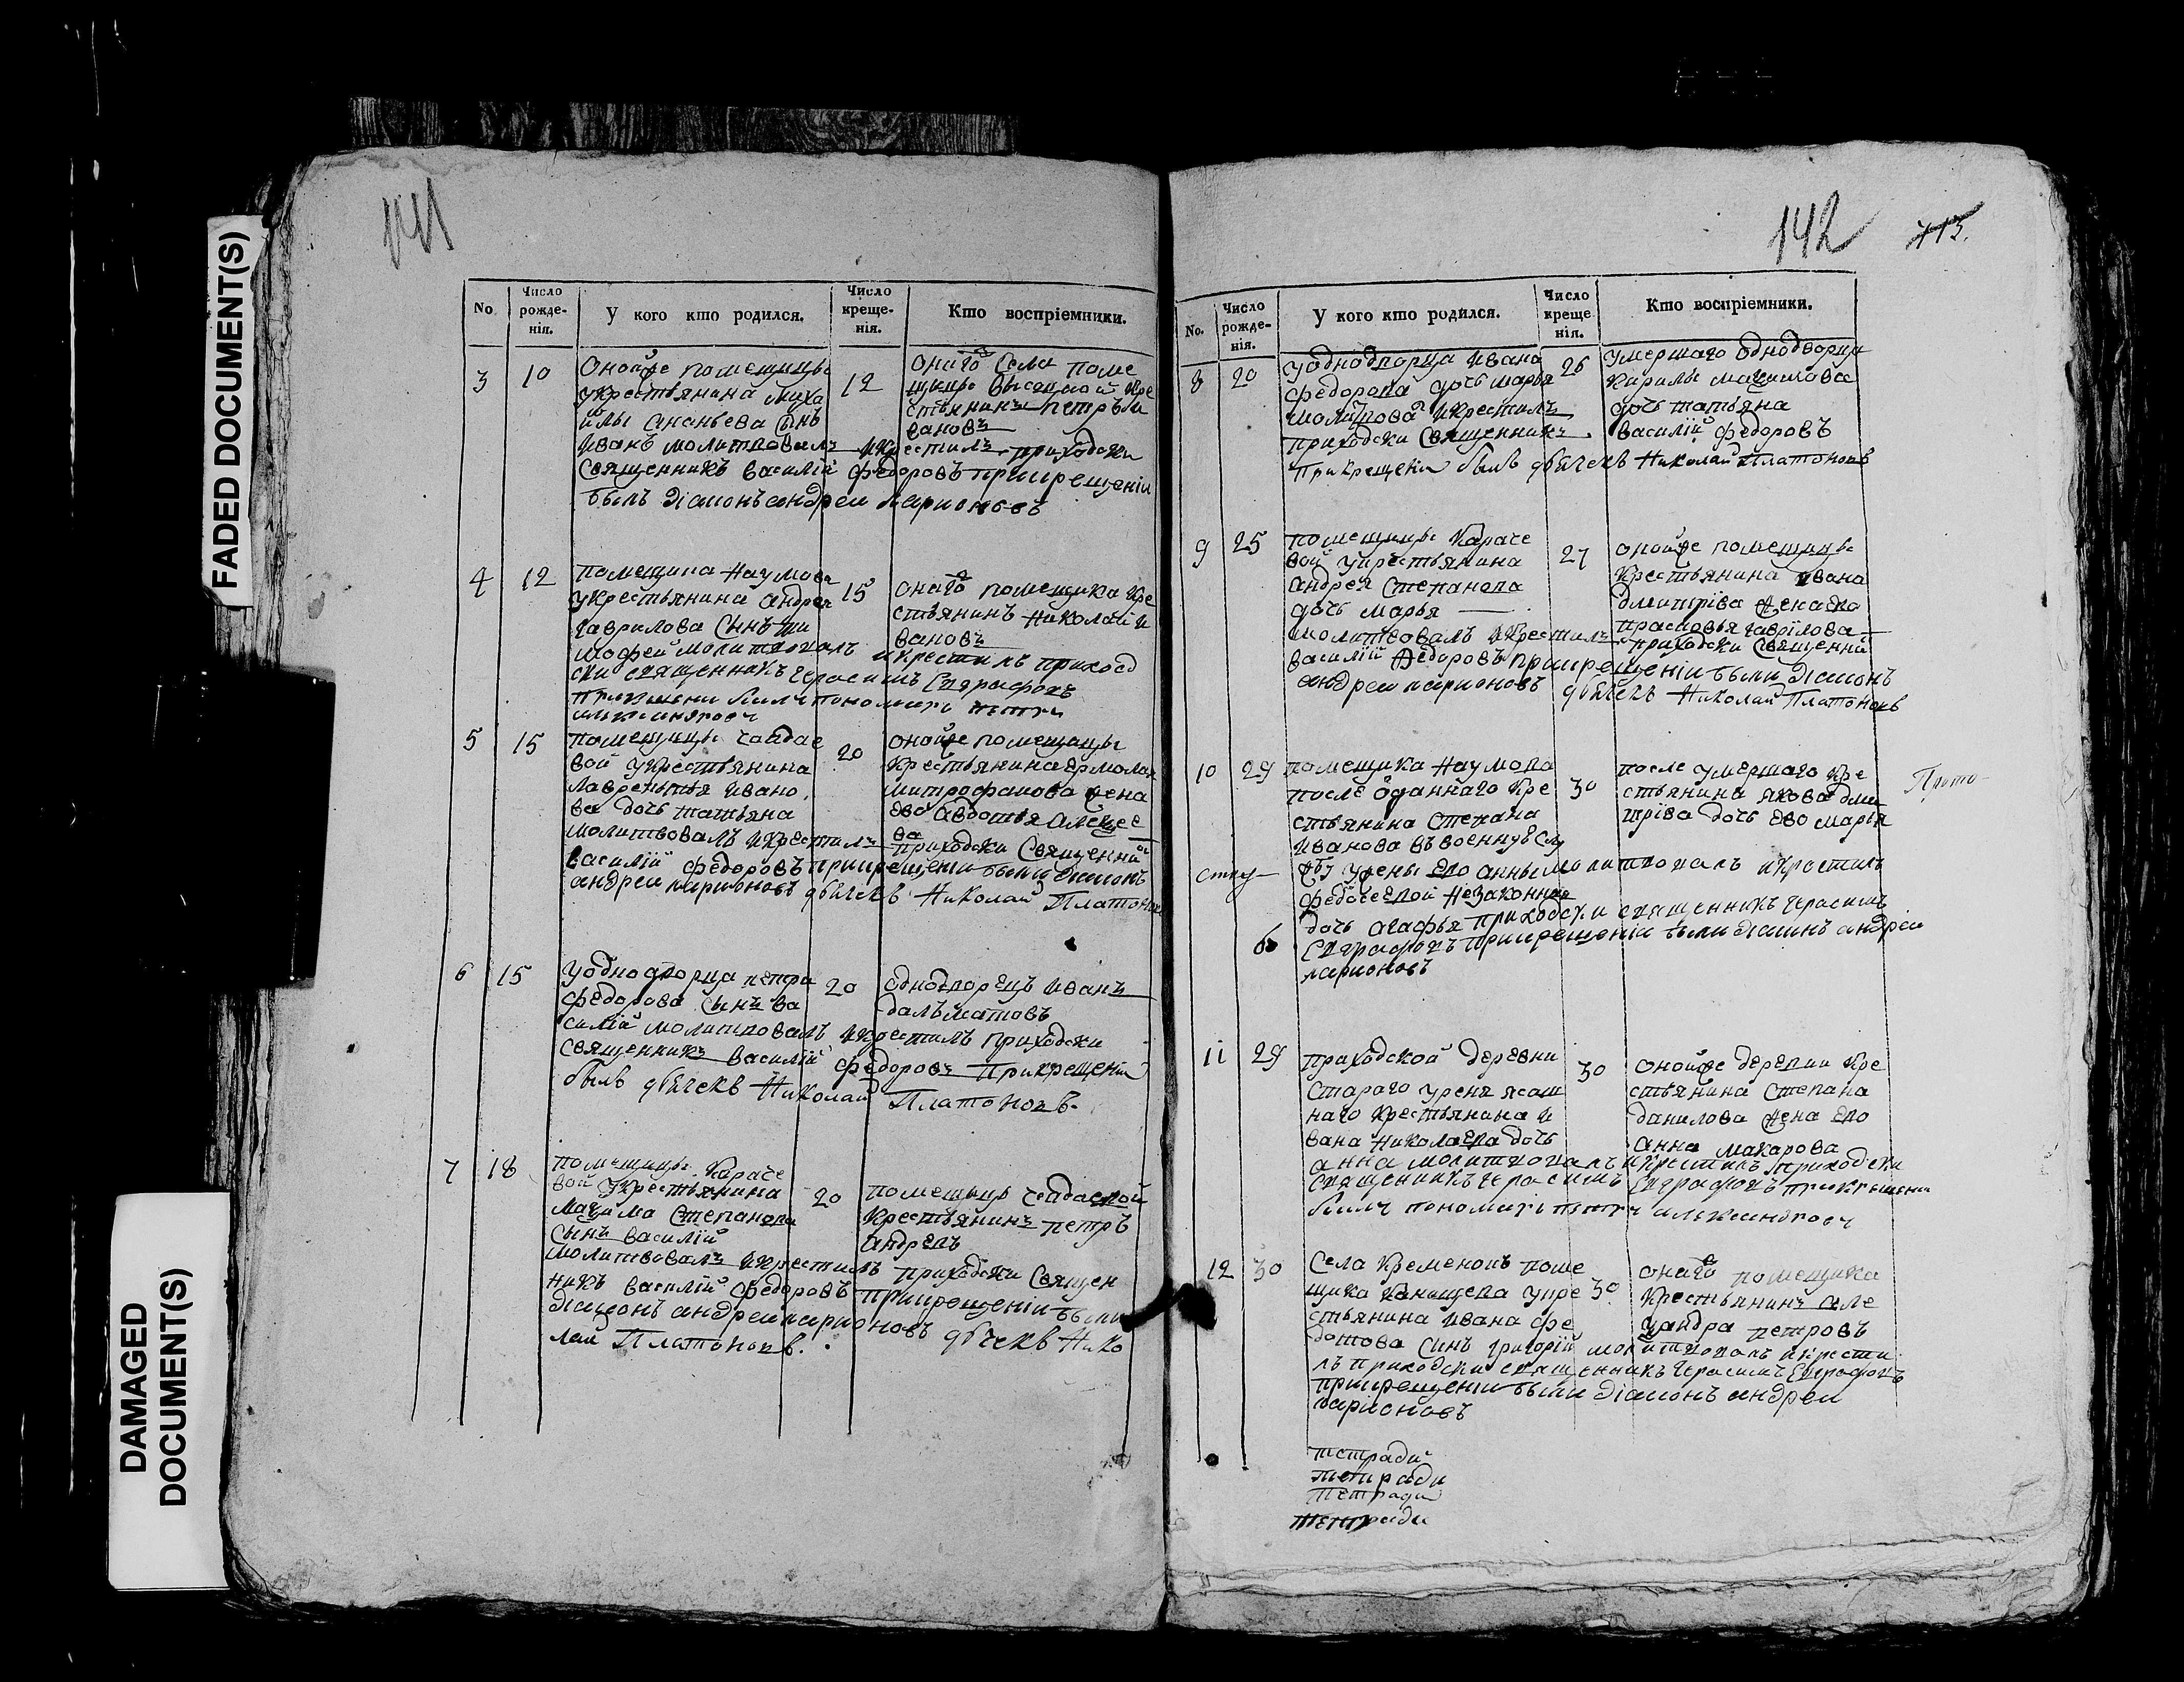 FADED DOCUMENT(S)
DAMAGED
DOCUMENT(S)
141
No
Число рожде-нія.
У кого кто родился.
Число креще-нія.
Кто воспріемники.
3 10
онойже помещицы
укрестьянина миха
илы ананьева сынъ
иванъ молитвовалъ икрестилъ приходски
священникъ василий федоровъ прикрещении
былъ диаконъ андреи ларионовъ
12
онаго села поме
щицы
кре
стьянинъ петръ и
вановъ
4 12
помещика наумова
укрестьянина андрея
гаврилова сынъ ти
мофей молитвовалъ икрестилъ приход
ски священникъ герасимъ Евграфовъ
15
онаго помещика кре
стьянинъ николай и
вановъ
5 15
помещицы
вой укрестьянина
лаврентья ивано
ва дочь татьяна
молитвовалъ икрестилъ приходски священни
василий федоровъ прикрещении были диаконъ
андреи ларионовъ дьячекъ Николай Платоновъ
20
онойже помещицы
крестьянина ермолая
митрофанова жена
ево авдотья алексее
ва
6 15
уоднодворца петра
федорова сынъ ва
силий молитвовалъ икрестилъ приходски
священникъ василий федоровъ прикрещении
былъ дьячекъ Николай Платоновъ.
20
однодворецъ иванъ
дальматовъ
7 18
помещицы Караче
вой укрестьянина
максима степанова
сынъ василий
молитвовалъ икрестилъ приходски священ
никъ василий федоровъ прикрещении были
диаконъ андрей ларионовъ дьячекъ Нико
лай Платоновъ.
20
помещицы
крестьянинъ петръ
андреевъ
142 713.
No.
Число рожде-нія.
У кого кто родился.
Число креще нія.
Кто воспріемники.
8 20
уоднодворца ивана
федорова дочь марья
молитвовалъ икрестилъ
приходски священникъ василий федоровъ
прикрещении былъ дьячекъ Николай Платоновъ
26
умершаго однодворца
кирилы максимова
дочь татьяна
9 25
помещицы Караче
вой укрестьянина
андрея степанова
дочь марья
молитвовалъ икрестилъ приходски священни
василий федоровъ прикрещении были диаконъ
андреи ларионовъ дьячекъ Николай Платоновъ
27
онойже помещицы
крестьянина ивана
дмитрива жена ево
прасковья гаврилова
10 29
помещика наумова
после отданнаго кре
стьянина степана
иванова ввоенную слу
жбу ужены ево анны молитвовалъ икрестилъ
федосеевой незаконная
дочь агафья приходски священникъ герасимъ
Евграфовъ прикрещении были диаконъ андреи
ларионовъ
30
после умершаго кре
стьянина якова дми
трива дочь ево марья
11 29
приходской деревни
стараго уреня ясаш
наго крестьянина и
вана николаева дочь
анна молитвовалъ икрестилъ приходски
священникъ герасимъ Евграфовъ прикрещении
былъ пономарь петръ александровъ
30
онойже деревни кре
стьянина степана
данилова жена ево
анна макарова
12 30
села Кременокъ поме
щика
укре
стьянина ивана фе
дотова сынъ григорий молитвовалъ икрести
лъ приходски священникъ герасимъ Евграфовъ
прикрещении были диаконъ андреи
ларионовъ
30
онаго помещика
крестьянинъ але
ксандра петровъ
тетради
тетради
тетради
тетради